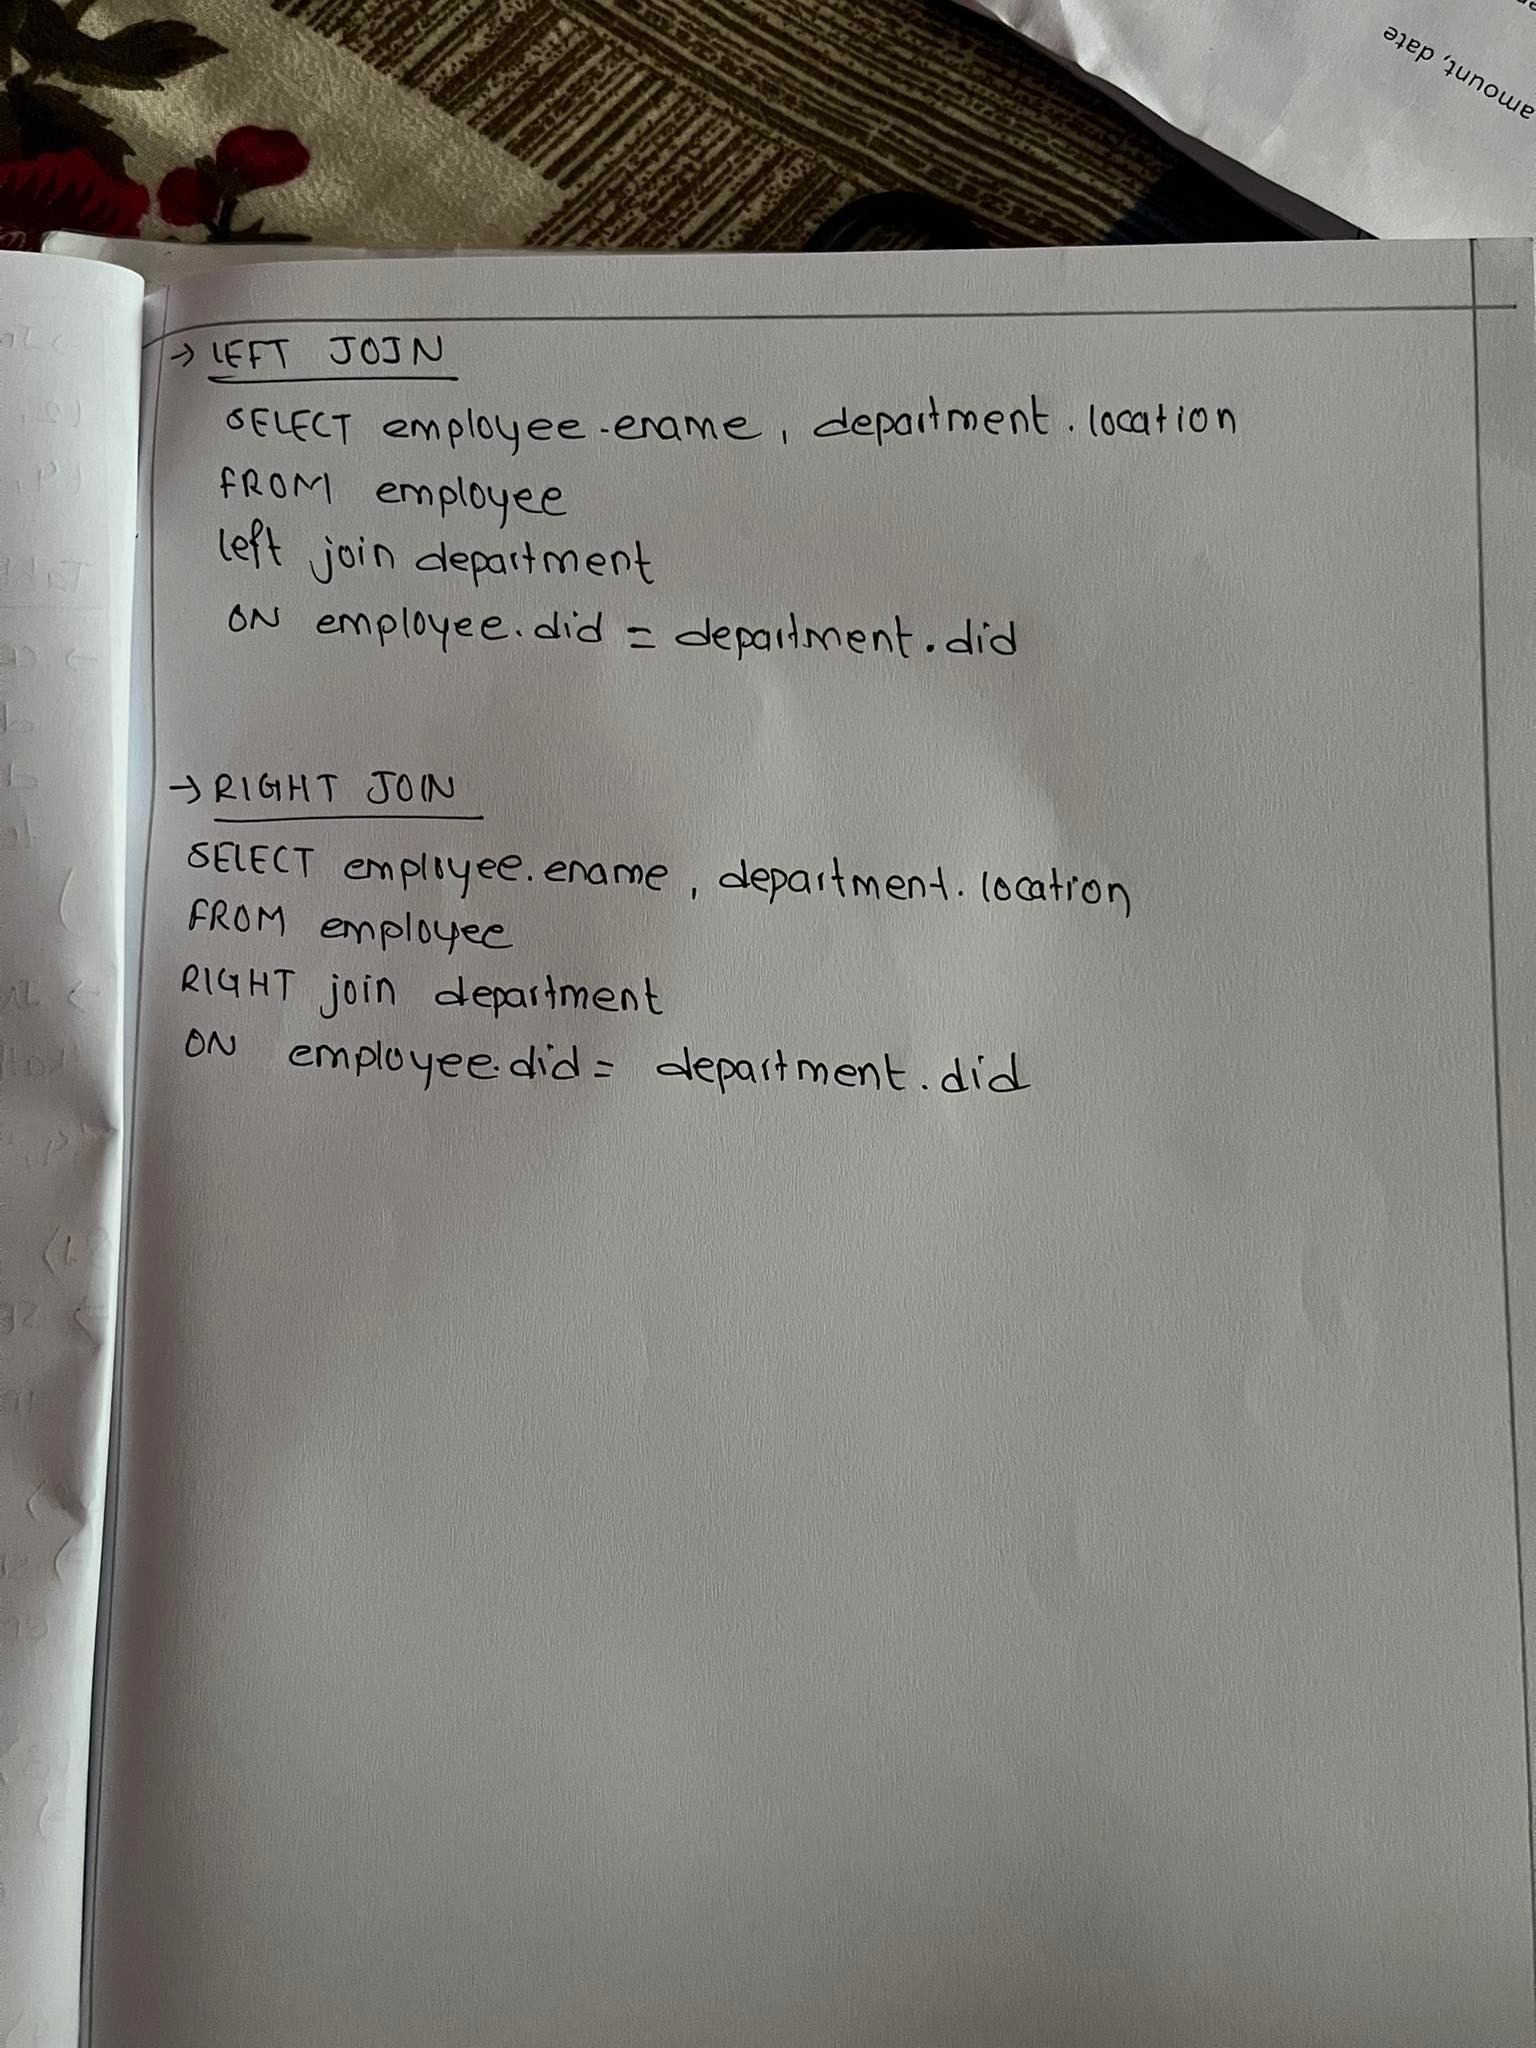 amount, date
→ LEFT JOIN
SELECT employee.ename, department.location
FROM employee
left join department
ON employee.did = department.did
→ RIGHT JOIN
SELECT employee.ename, department.location
FROM employee
RIGHT join department
ON employee.did = department.did